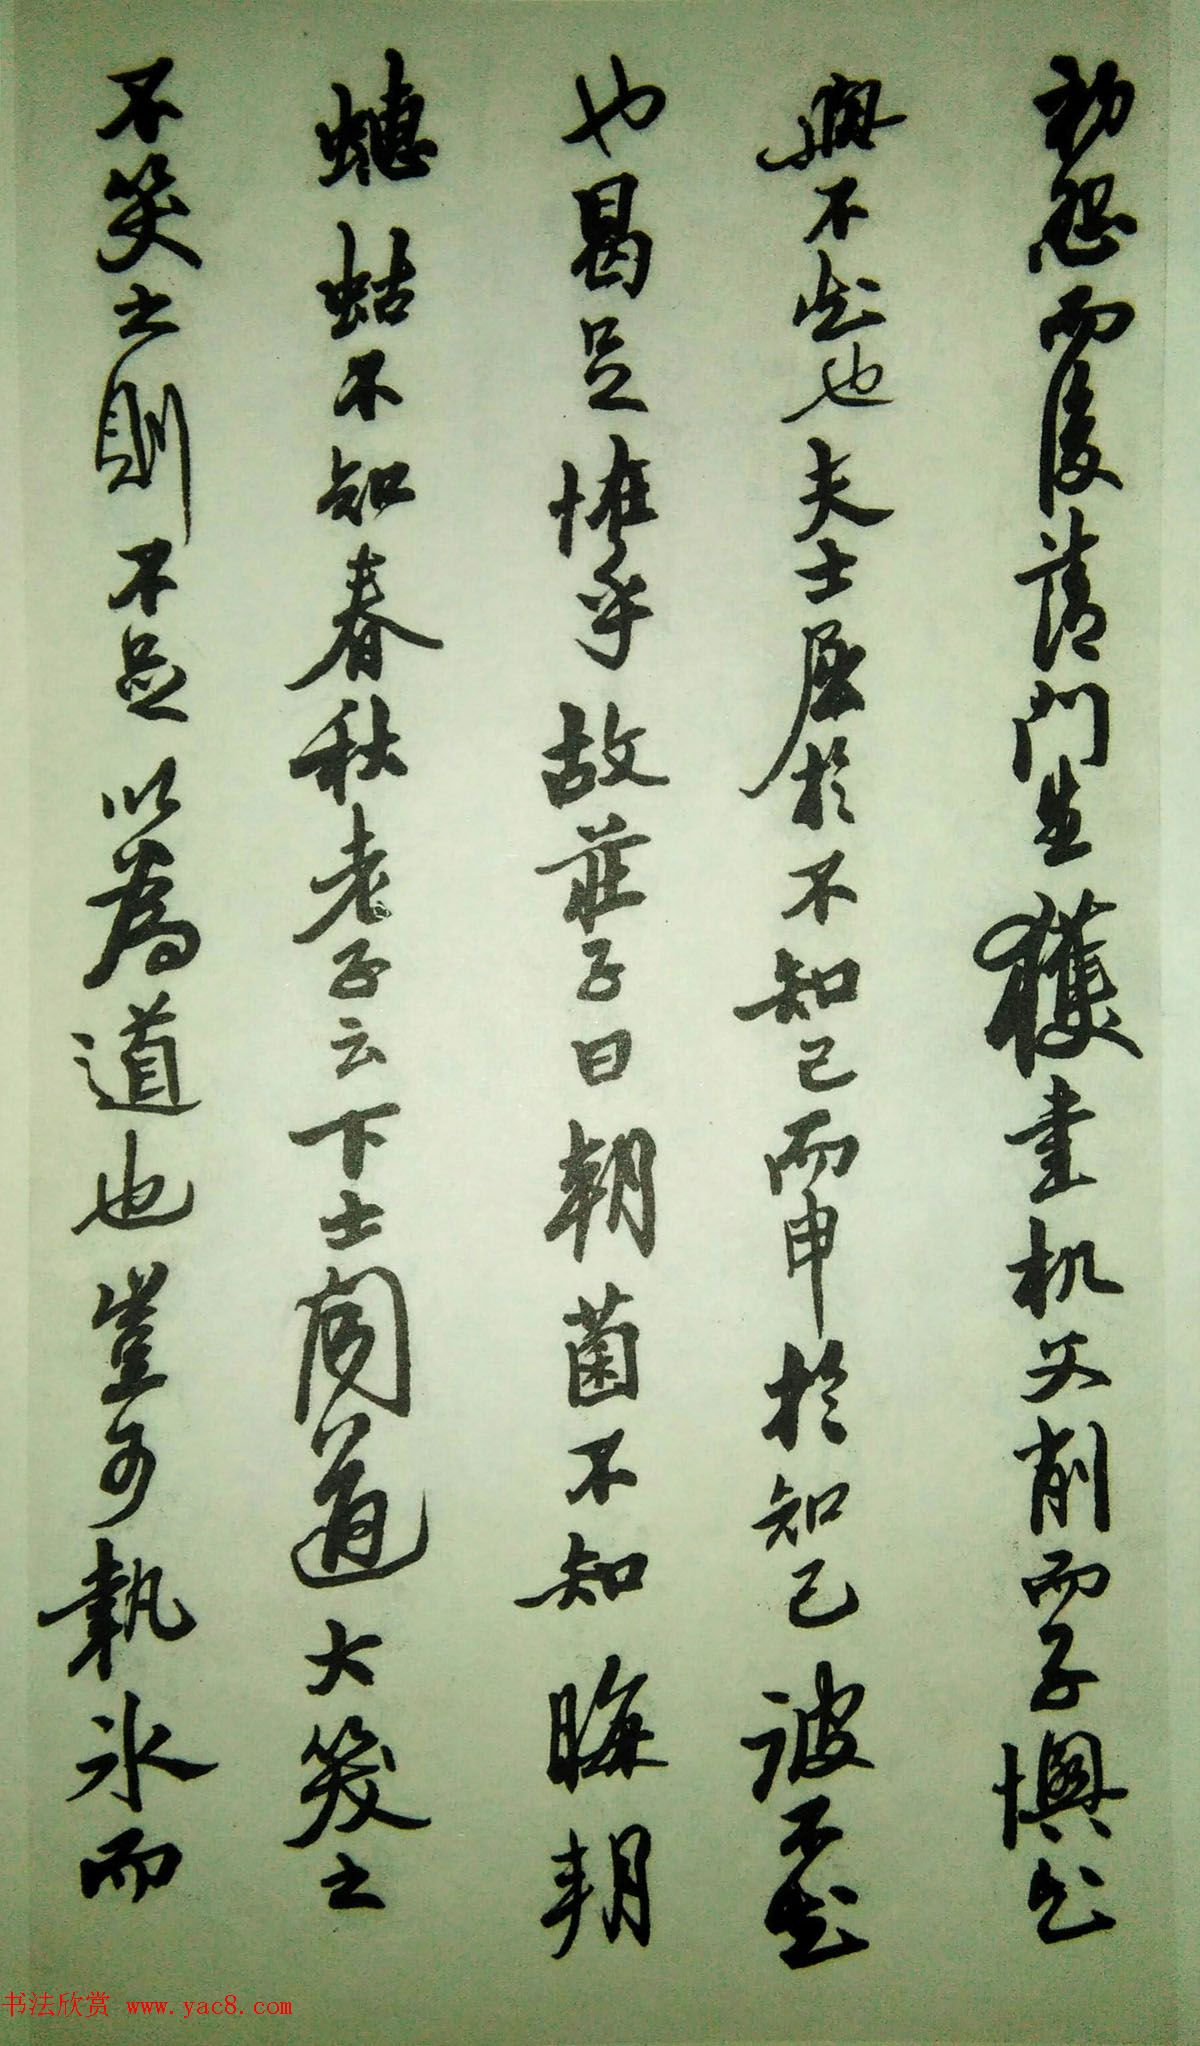 初怨而後請門生獲書机父削而子懊知
與不知也夫士屈於不知己而申於知己彼不知
也曷足怪乎故莊子曰朝菌不知晦朔
蟪蛄不知春秋老子云下士聞道大笑之
不笑之則不足以為道也豈可執冰而
书法欣赏 www.yac8.com